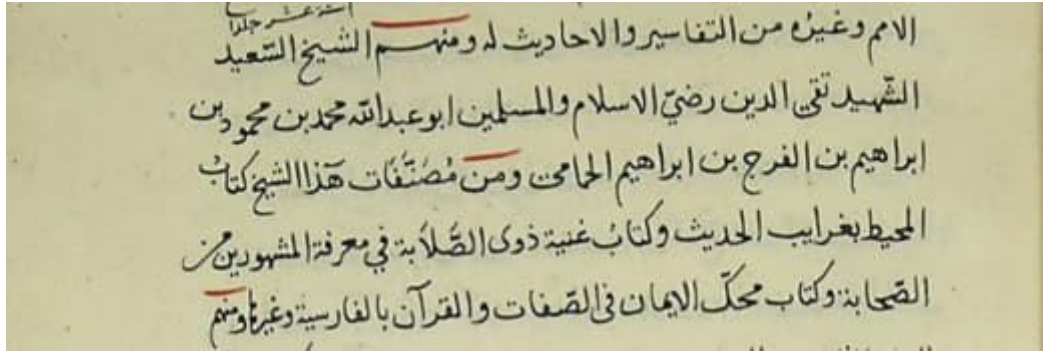 ستة عشر جلدا
الامم وغيره من التفاسير والاحاديث له ومنهم الشيخ السّعيد
الشّهيد تقي الدين رضيّ الاسلام والمسلمين ابو عبدالله محمد بن محمود بن
ابراهيم بن الفرج بن ابراهيم الحمامى ومن مُصَنَّفَات هَذا الشيخ كتابُ
المحيط بغرايب الحديث وكتابُ غنية ذوى الصَّلَابة في معرفة المشهودين من
الصّحابة وكتاب محكّ الايمان فى الصّفات والقرآن بالفارسية وغيرها ومنهم